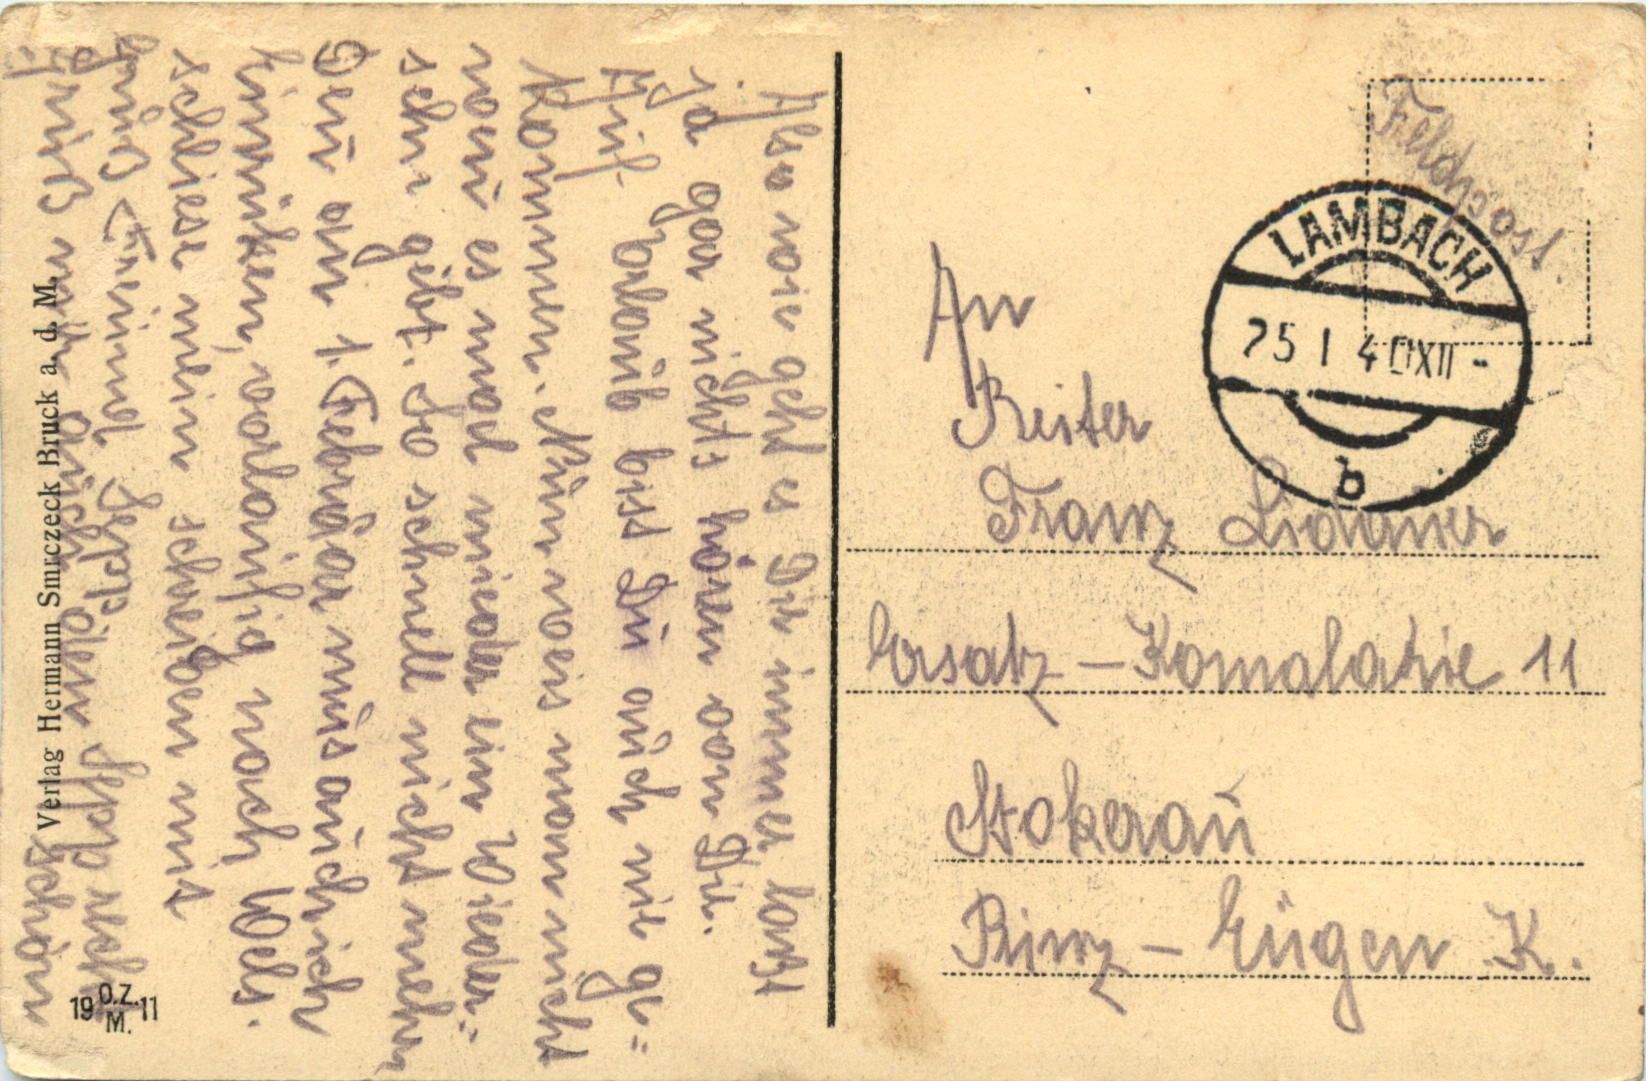 Also wie geht es Dir immer last
ja gar nichts hören von Dir.
Auf Urlaub bist Du auch nie ge=
kommen. Nun weis man nicht
wen es mal wieder ein Wieder=
sehn gibt. So schnell nicht mehr
Den am 1. Februar mus auch ich
einrüken, vorlaufig nach Wels.
schliese mein schreiben mit
Gruß
Verlag Hermann Smrczeck Bruck a. d. M.
19 O.Z.M. 11
Feldpost.
LAMBACH
25 I 40 XII -
b
An
Reiter
Franz
Ersatz-Komp 11
Stokerau
Prinz-Eugen K.